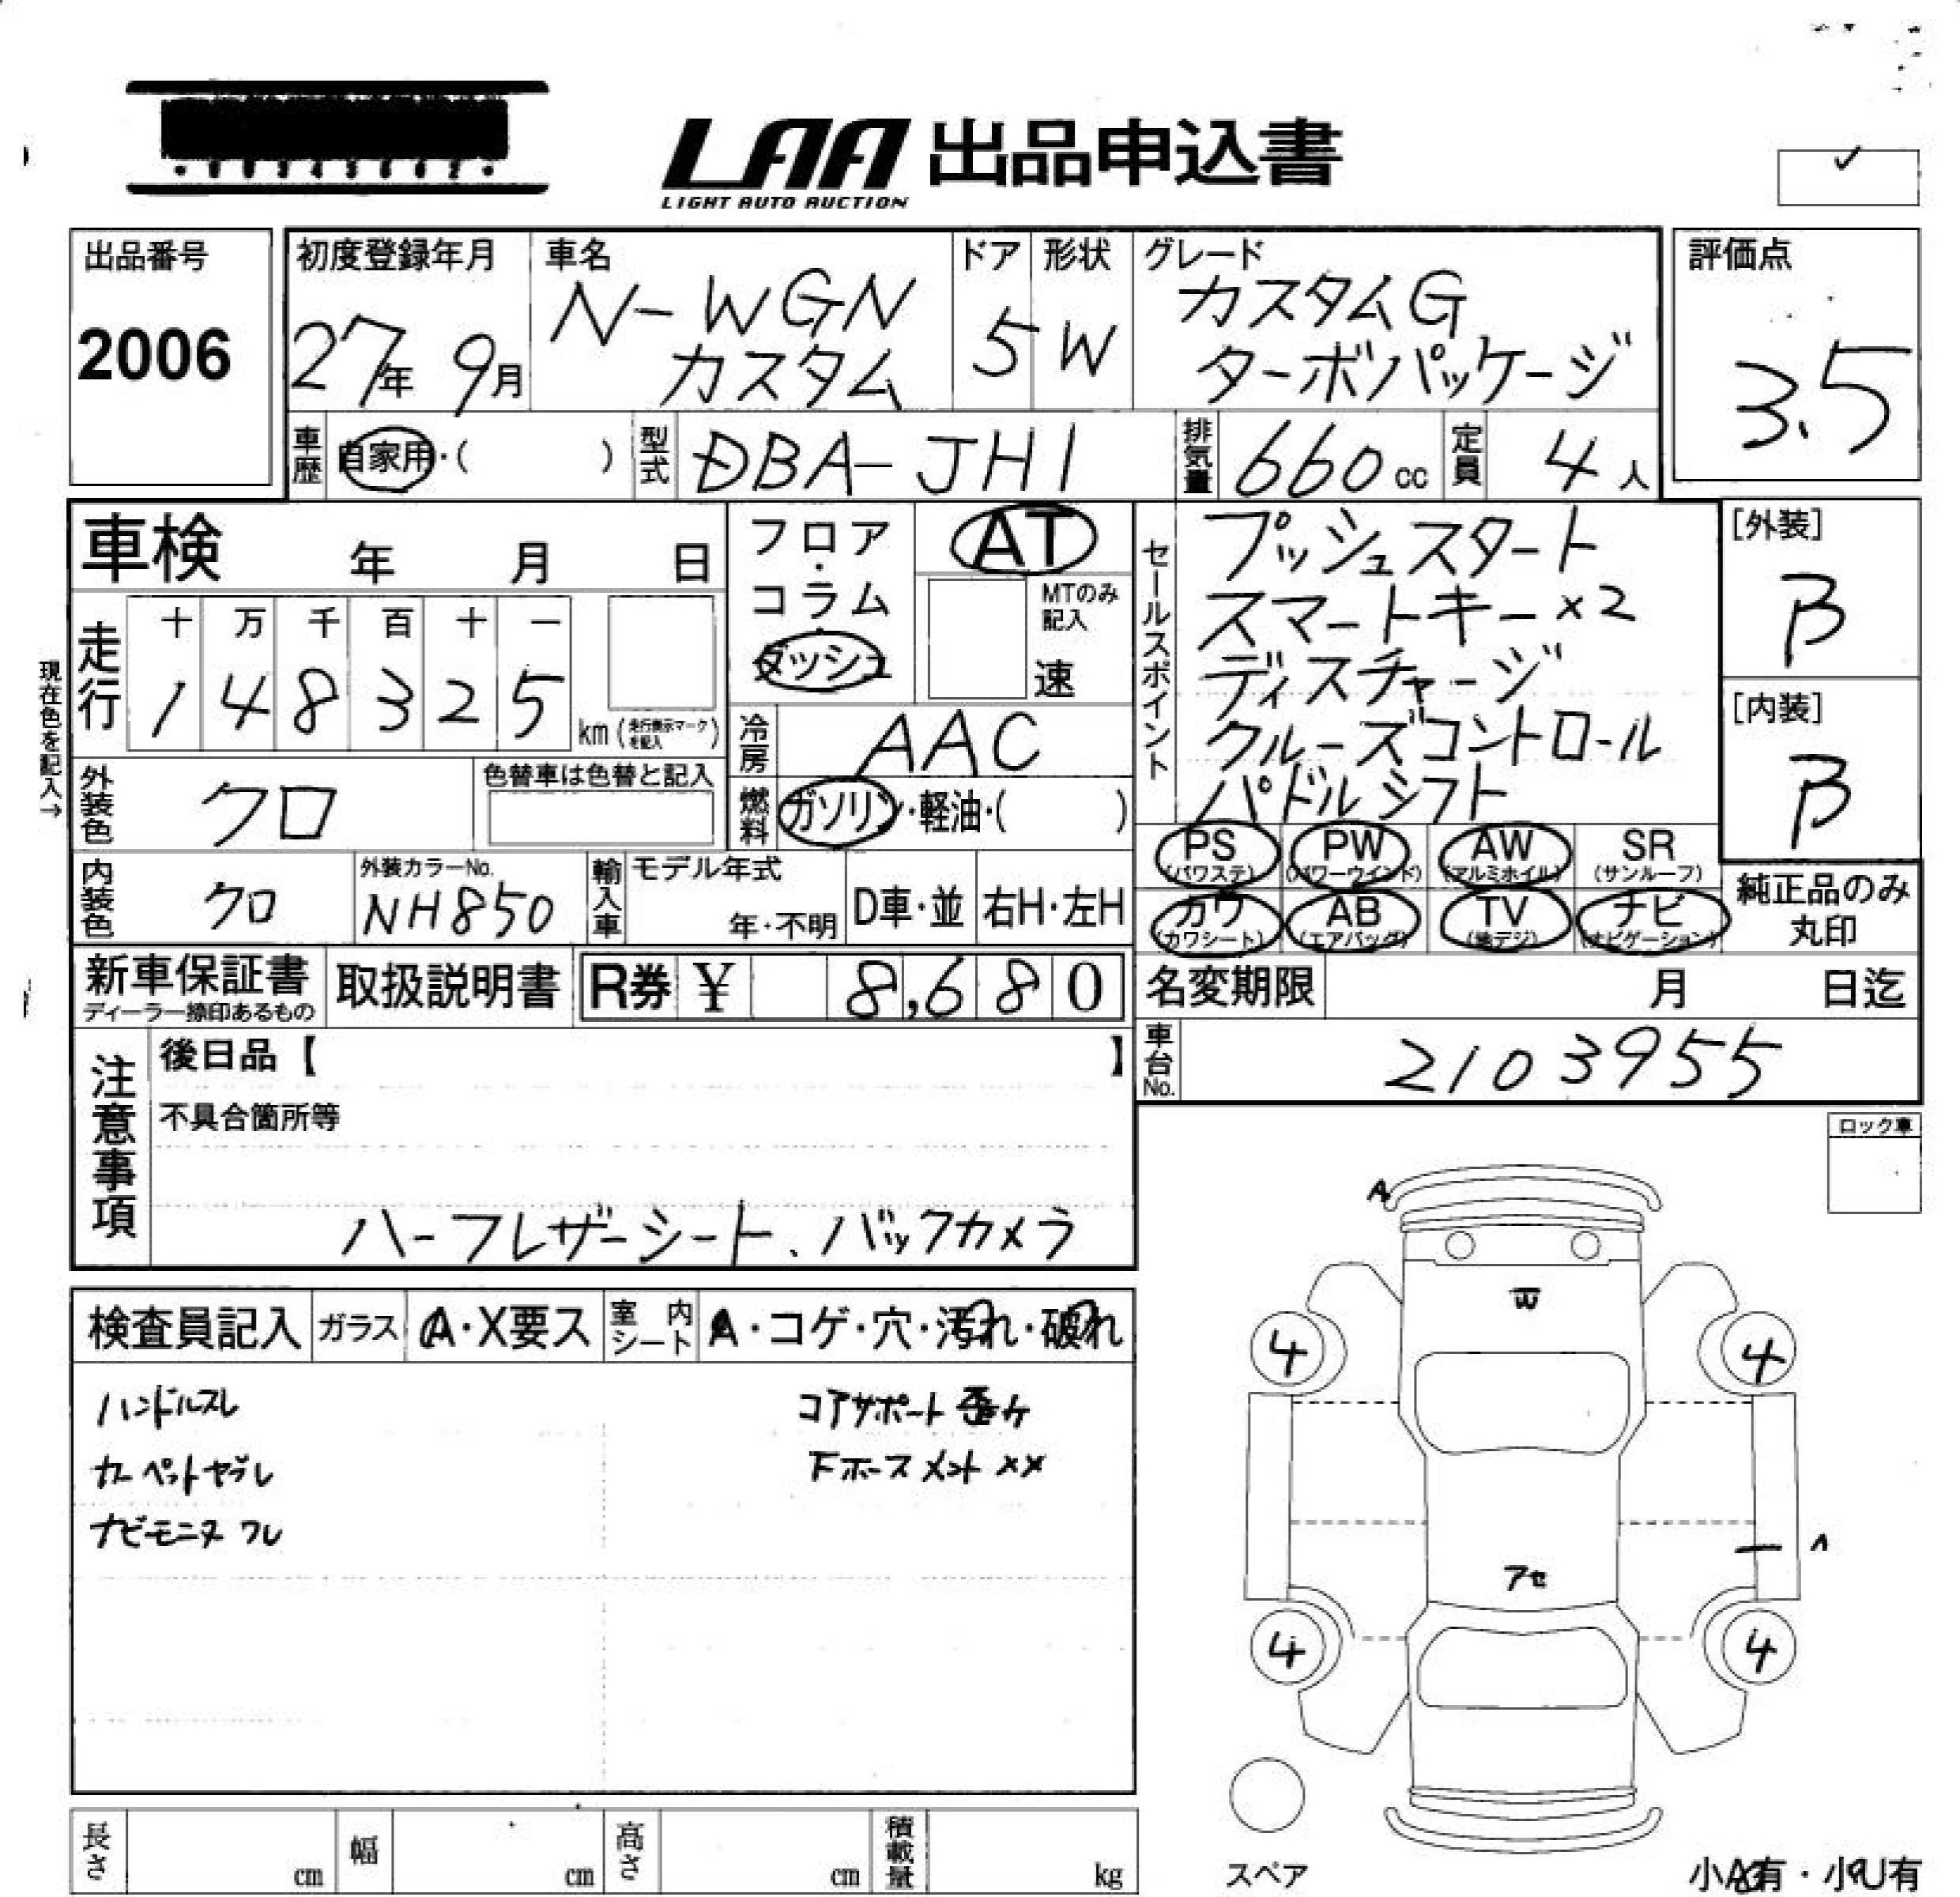 LAA 出品申込書
LIGHT AUTO AUCTION
✓
出品番号
2006
初度登録年月
27年 9月
車名
N-WGN
カスタム
ドア
5
形状
W
グレード
カスタムG
ターボパッケージ
評価点
3.5
車歴
自家用・( )
型式
DBA-JH1
排気量
660cc
定員
4人
車検 年 月 日
フロア・コラム・ダッシュ
AT
MTのみ記入
速
セールスポイント
プッシュスタート
スマートキー×2
ディスチャージ
クルーズコントロール
パドルシフト
[外装]
B
[内装]
B
現在色を記入→
走行
十 万 千 百 十 一
1 4 8 3 2 5
km(走行表示マークを記入)
冷房
AAC
外装色
クロ
色替車は色替と記入
燃料
ガソリン・軽油・( )
PS (パワステ)
PW (パワーウインド)
AW (アルミホイル)
SR (サンルーフ)
カワ (カワシート)
AB (エアバッグ)
TV (地デジ)
ナビ (ナビゲーション)
純正品のみ
丸印
内装色
クロ
外装カラーNo.
NH850
輸入車
モデル年式
年・不明
D車・並
右H・左H
新車保証書
ディーラー捺印あるもの
取扱説明書
R券 ¥ 8,680
名変期限 月 日迄
車台No.
2103955
注意事項
後日品【 】
不具合箇所等
ハーフレザーシート、バックカメラ
ロック車
検査員記入
ガラス
A・X要ス
室内シート
A・コゲ・穴・汚れ・破れ
ハンドルスレ
コアサポート歪ケ
カーペットヤブレ
ナビモニヌフレ
A
4
4
アセ
4
4
スペア
長さ cm
幅 cm
高さ cm
積載量 kg
小A有・小U有